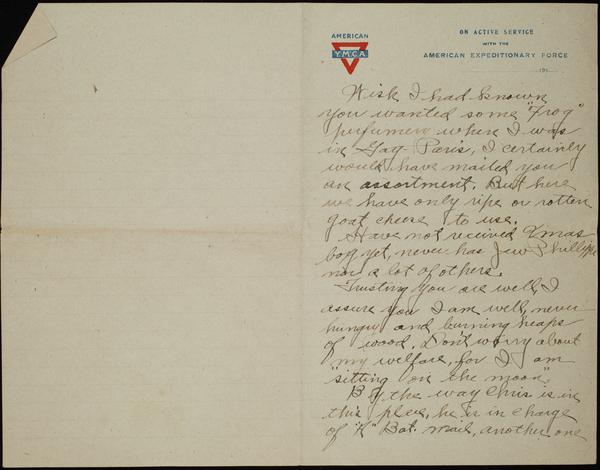 AMERICAN
YMCA
ON ACTIVE SERVICE
WITH THE
AMERICAN EXPEDITIONARY FORCE
191
Wish I had known
you wanted some "Frog"
perfumery when I was
in Gay Paris, I certainly
would have mailed you
an assortment. But here
we have only ripe or rotten
goat cheese to use.
Have not received Xmas
box yet, never has Jew Phillips
nor a lot of others.
Trusting you are well, I
assure you I am well, never
hungry and burning heaps
of wood. Don't worry about
my welfare, for I am
"sitting on the moon".
By the way Chris is in
this place, he is in charge
of "A" Bat. mail, another one